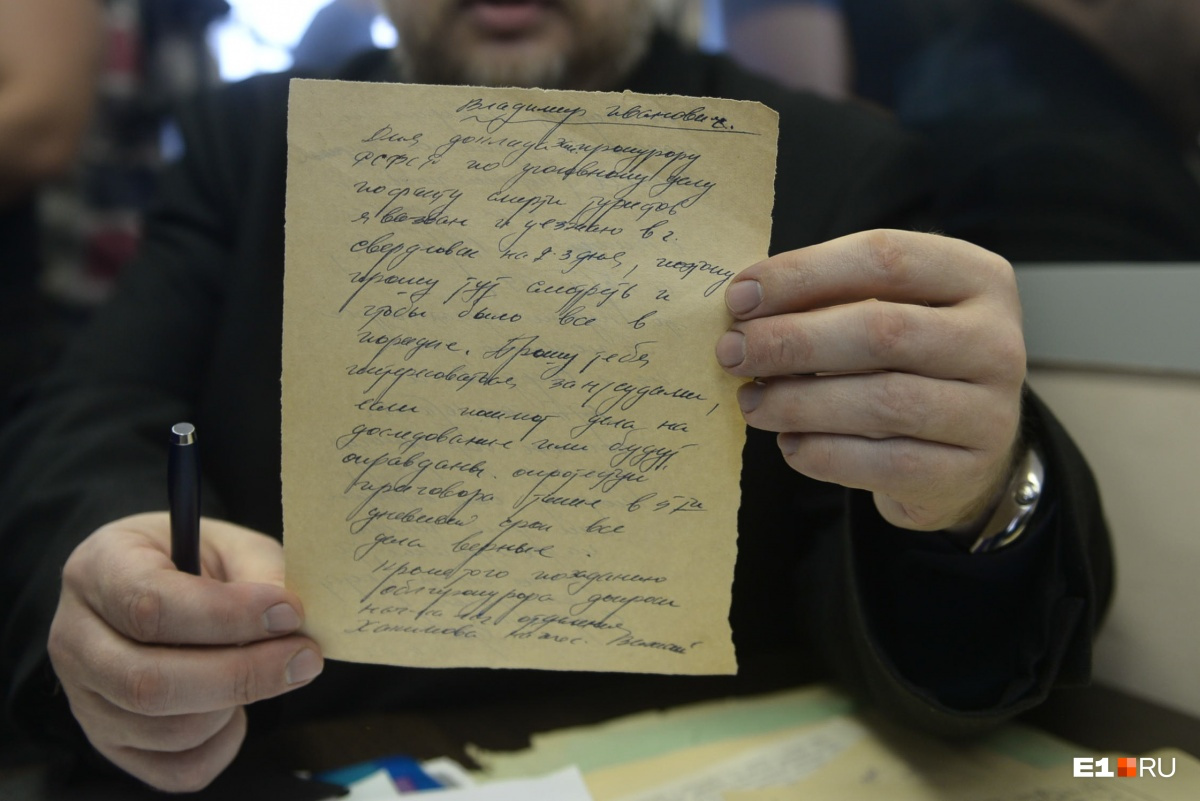 Владимир Иванович.
Для доклада прокурору
РСФСР по уголовному делу
по факту смерти туристов
я вызван и уезжаю в г.
Свердловск на 2-3 дня, поэтому
прошу тут смотреть и
чтобы было все в
порядке. Прошу тебя
интересоваться за н/судами,
если пошлют дела на
доследование или будут
оправданы. опротестуй
приговора также в 5ти
дневный срок все
дела верные.
Кроме того по заданию
облпрокурора допроси
нач-ка отделения
Хакимова
E1.RU